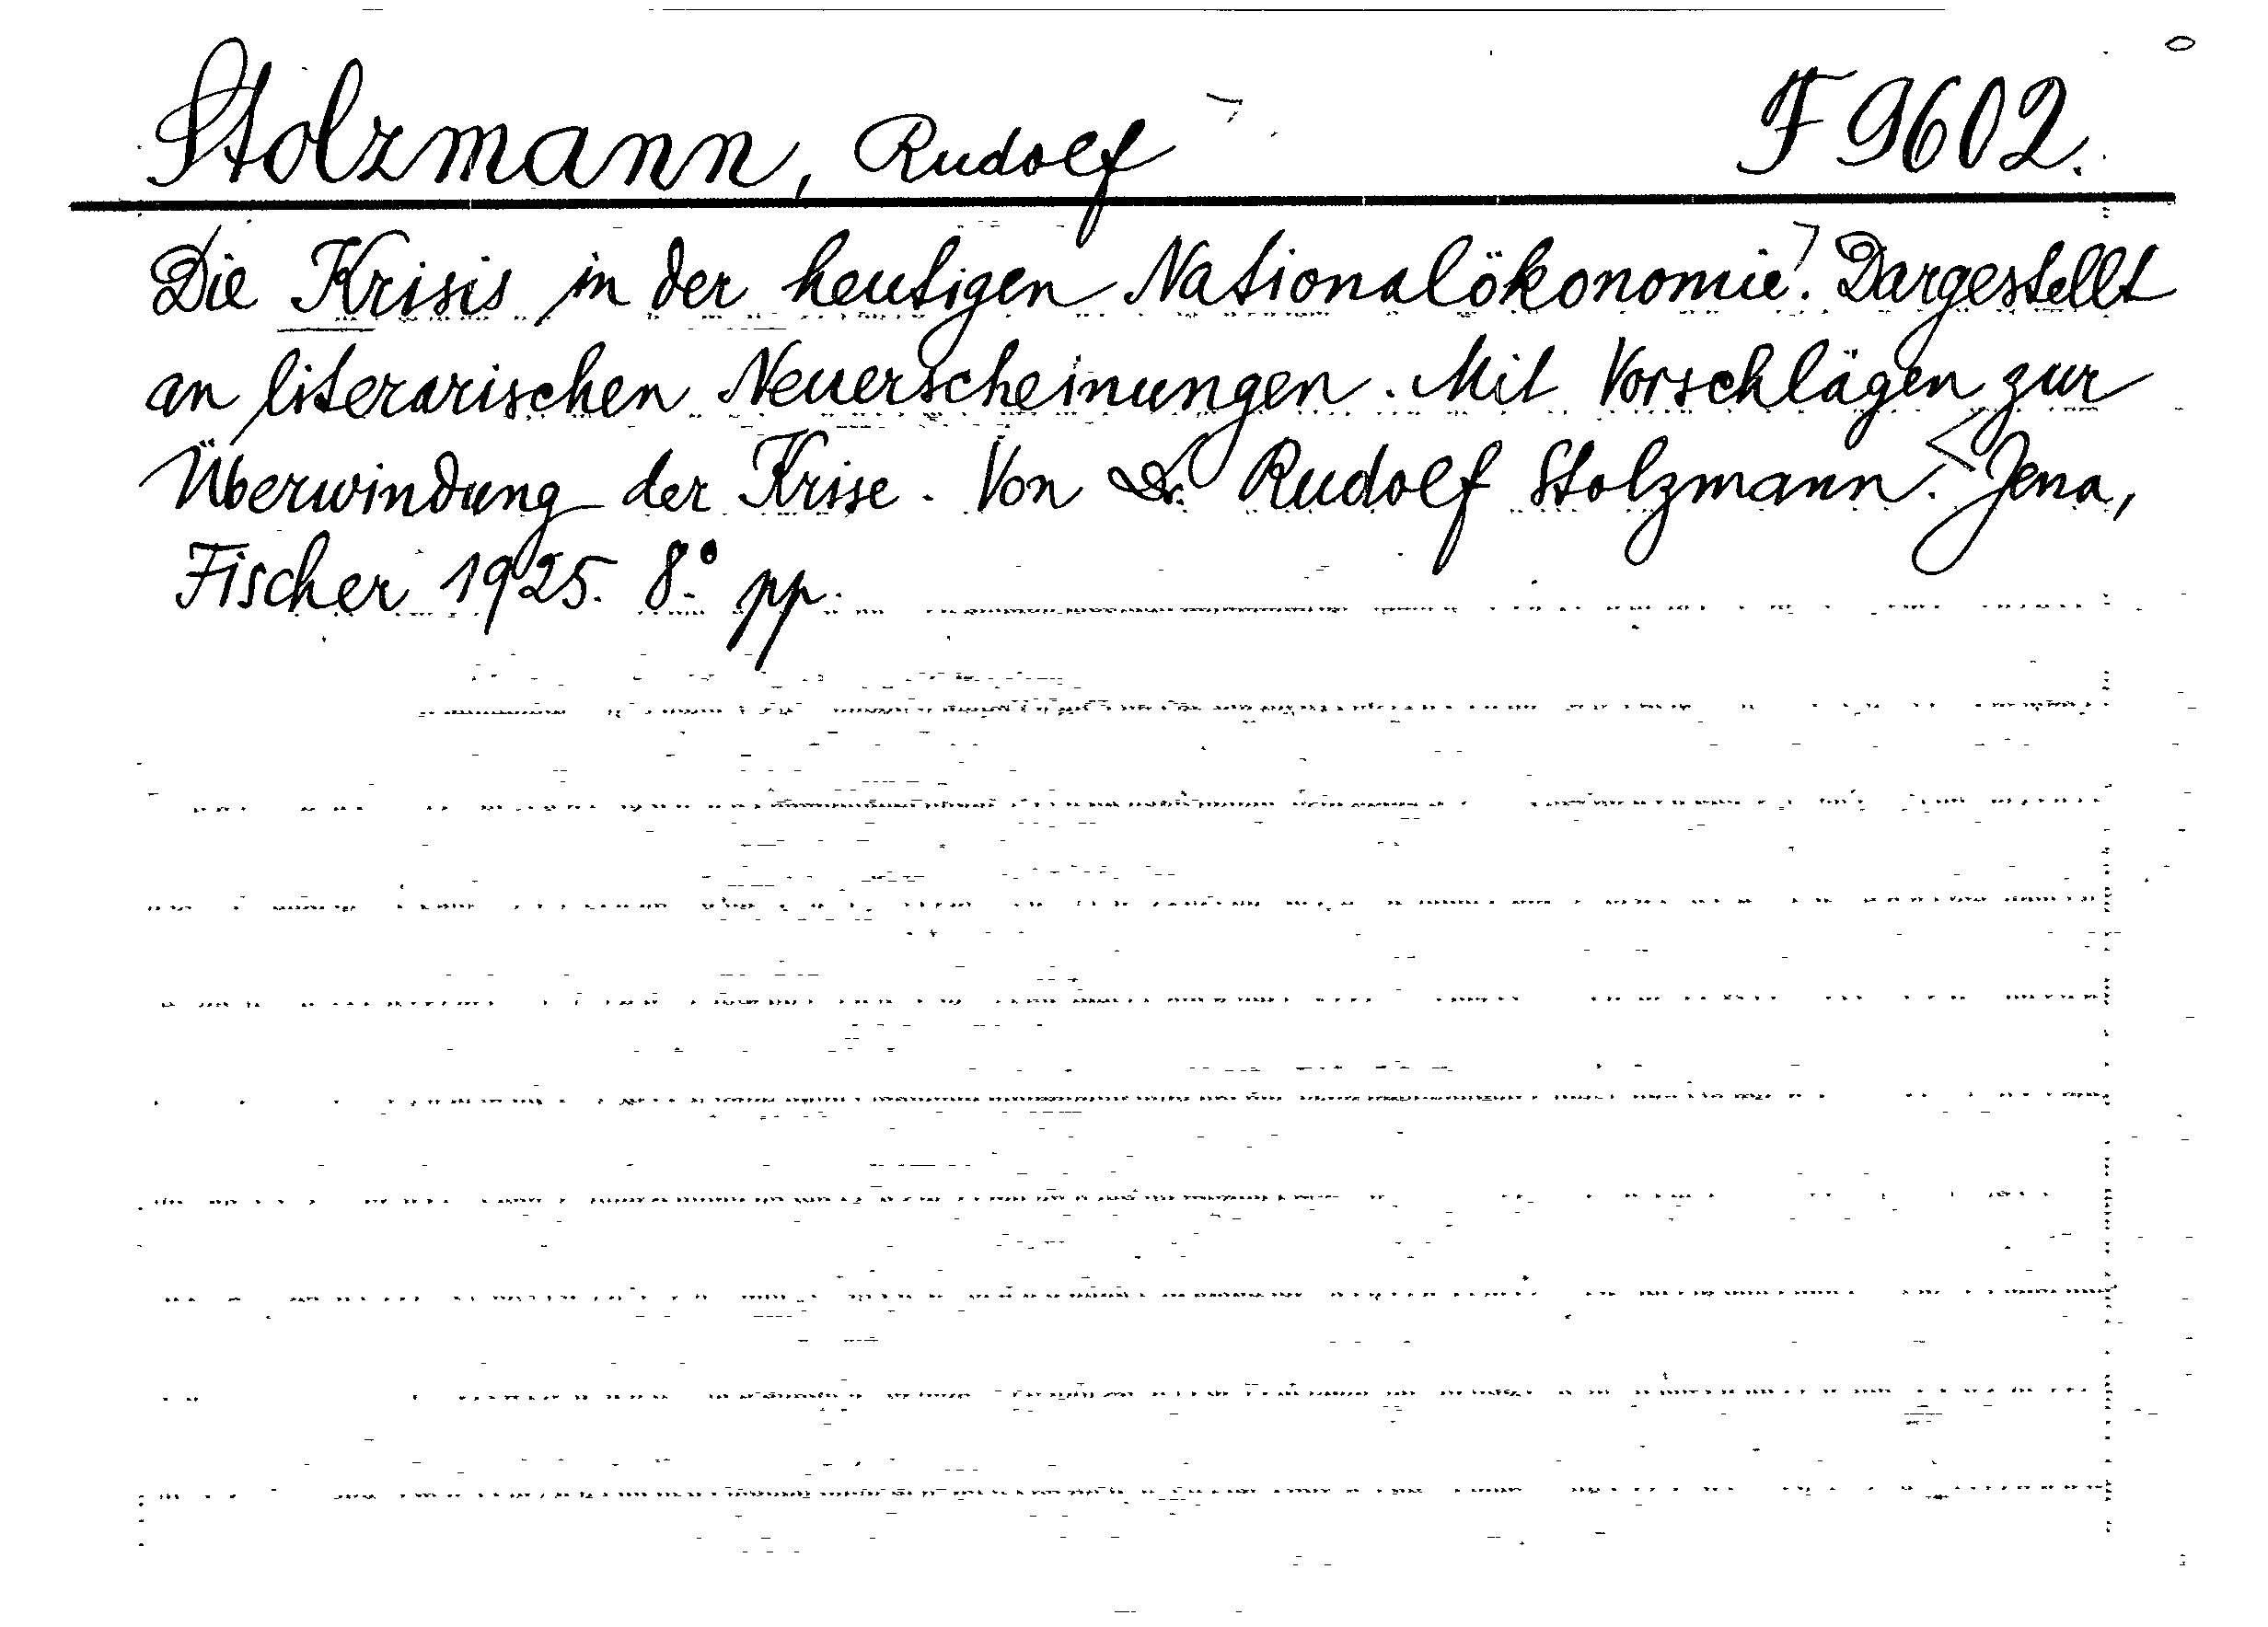 Stolzmann, Rudolf F 9602.
Die Krisis in der heutigen Nationalökonomie. Dargestellt
an literarischen Neuerscheinungen. Mit Vorschlägen zur
Überwindung der Krise. Von Dr. Rudolf Stolzmann. Jena,
Fischer 1925. 8° pp.